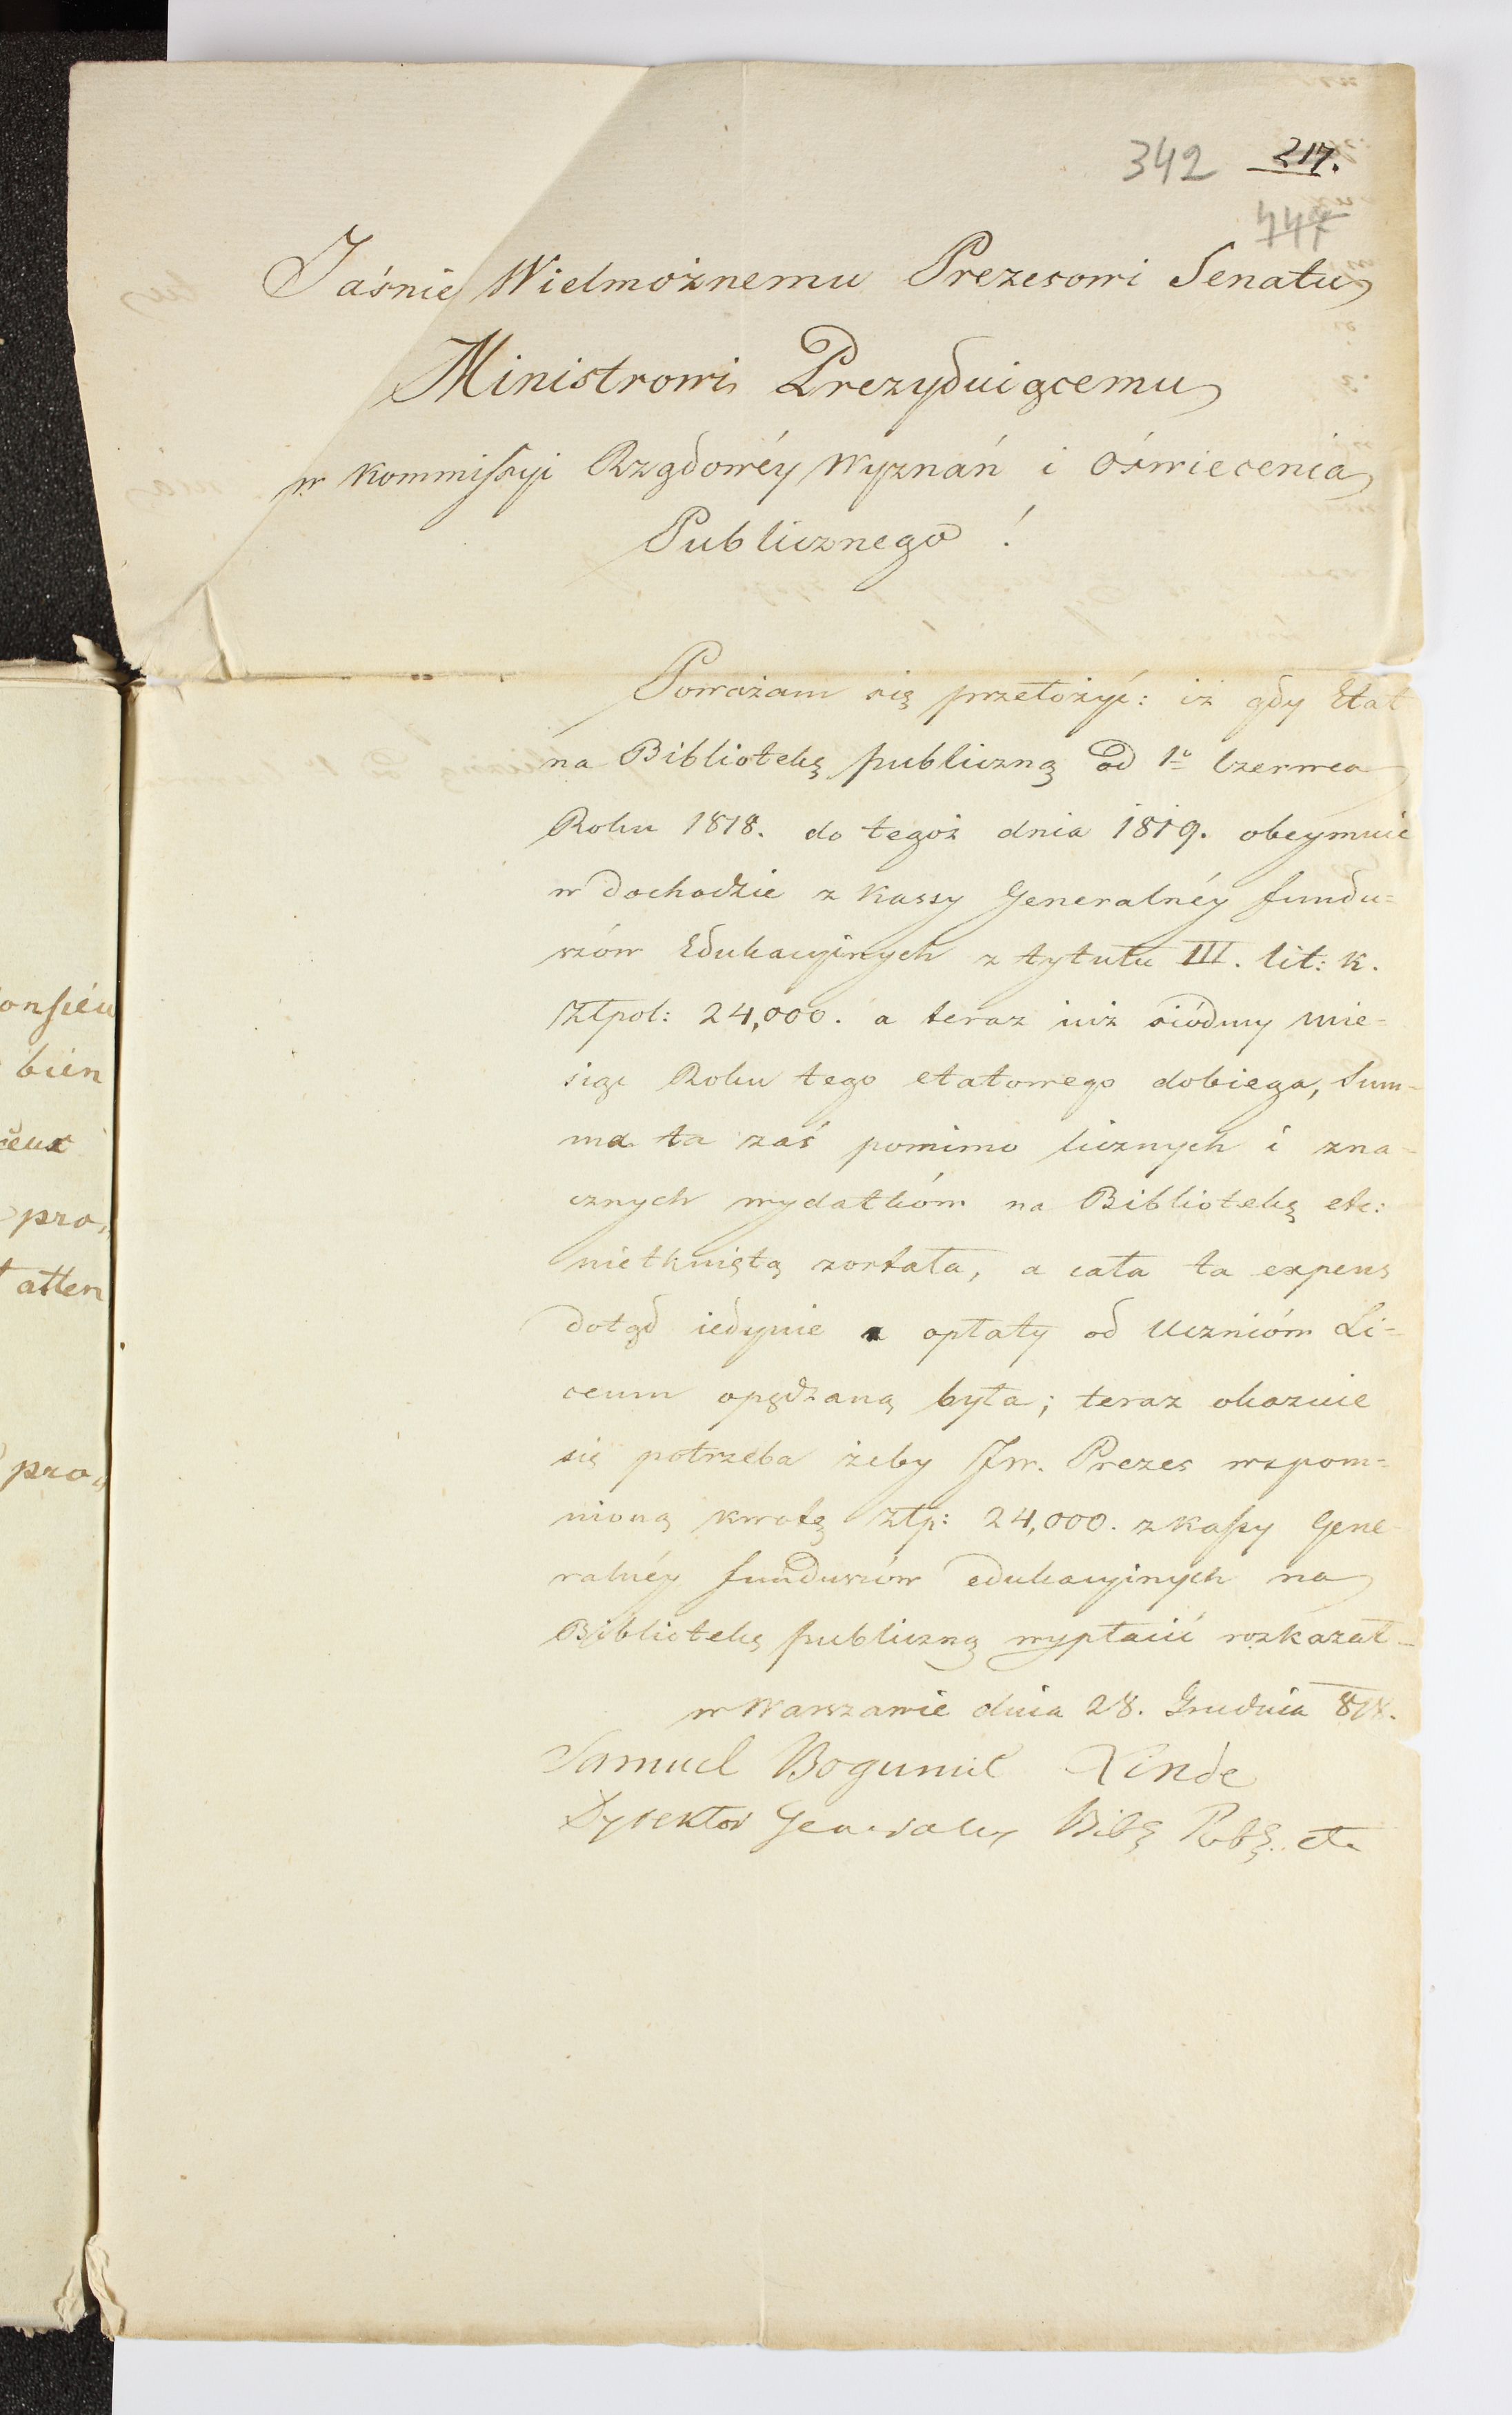 342 217.
447
Jaśnie Wielmożnemu Prezesowi Senatu
Ministrowi Prezyduiącemu
w Kommissyi Rządowéy Wyznań i Oświecenia
Publicznego !
Poważam się przełożyć: iż gdy Etat
na Bibliotekę publiczną od 1º Czerwca
Roku 1818. do tegoż dnia 1819. obeymuie
w dochodzie z Kassy Generalnéy fundu=
szów Edukacyinych z tytułu III. lit: K.
Złpol: 24,000. a teraz iuż siódmy mie=
siąc Roku tego etatowego dobiega, Sum=
ma ta zaś pomimo licznych i zna=
cznych wydatków na Bibliotekę etc:
nietkniętą została, a cała ta expens
dotąd iedynie z opłaty od Uczniów Li=
ceum opędzaną była; teraz okazuie
się potrzeba żeby JW. Prezes wspom=
nioną kwotę złp: 24,000. z kassy Gene=
ralnéy funduszów edukacyinych na
Bibliotekę publiczną wypłacić rozkazał_
w Warszawie dnia 28. Grudnia 818.
Samuel Bogumił Linde
Dyrektor Generalny Bibl. Publ. etc
onsieu
bien
ieux
pro,
atten
pro,